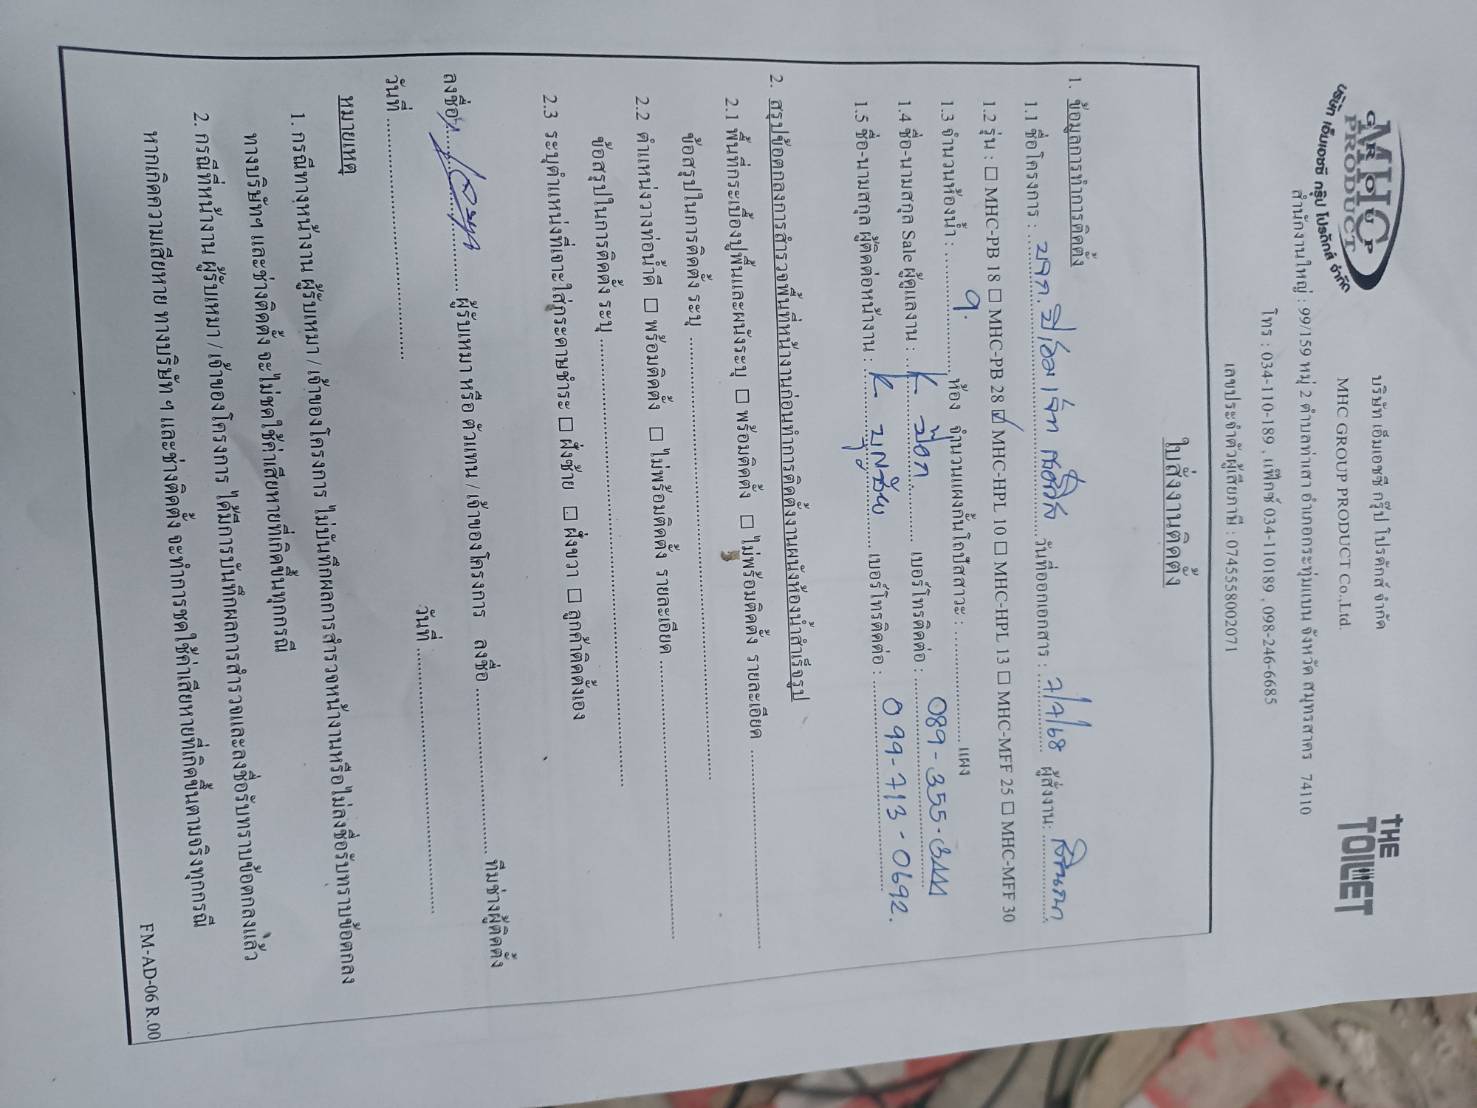 MHC
GROUP
PRODUCT
บริษัท เอ็มเอชซี กรุ๊ป โปรดักส์ จำกัด
บริษัท เอ็มเอชซี กรุ๊ป โปรดักส์ จำกัด
MHC GROUP PRODUCT Co.,Ltd.
THE
TOILET
สำนักงานใหญ่ : 99/159 หมู่ 2 ตำบลท่าเสา อำเภอกระทุ่มแบน จังหวัด สมุทรสาคร 74110
โทร : 034-110-189 , แฟ็กซ์ 034-110189 , 098-246-6685
เลขประจำตัวผู้เสียภาษี : 0745558002071
ใบสั่งงานติดตั้ง
1. ข้อมูลการทำการติดตั้ง
1.1 ชื่อโครงการ : บจก. วันที่ออกเอกสาร : 7/7/68 ผู้สั่งงาน:
1.2 รุ่น : ☐ MHC-PB 18 ☐ MHC-PB 28 ☑ MHC-HPL 10 ☐ MHC-HPL 13 ☐ MHC-MFF 25 ☐ MHC-MFF 30
1.3 จำนวนห้องน้ำ : 9 ห้อง จำนวนแผงกั้นโถปัสสาวะ : แผง
1.4 ชื่อ-นามสกุล Sale ผู้ดูแลงาน : K เบอร์โทรติดต่อ : 089-355-
1.5 ชื่อ-นามสกุล ผู้ติดต่อหน้างาน : K บุญชัย เบอร์โทรติดต่อ : 099-713-0692.
2. สรุปข้อตกลงการสำรวจพื้นที่หน้างานก่อนทำการติดตั้งงานผนังห้องน้ำสำเร็จรูป
2.1 พื้นที่กระเบื้องปูพื้นและผนังระบุ ☐ พร้อมติดตั้ง ☐ ไม่พร้อมติดตั้ง รายละเอียด
ข้อสรุปในการติดตั้ง ระบุ
2.2 ตำแหน่งวางท่อน้ำดี ☐ พร้อมติดตั้ง ☐ ไม่พร้อมติดตั้ง รายละเอียด
ข้อสรุปในการติดตั้ง ระบุ
2.3 ระบุตำแหน่งที่เจาะใส่กระดาษชำระ ☐ ฝั่งซ้าย ☐ ฝั่งขวา ☐ ลูกค้าติดตั้งเอง
ลงชื่อ ผู้รับเหมา หรือ ตัวแทน / เจ้าของโครงการ ลงชื่อ ทีมช่างผู้ติดตั้ง
วันที่ วันที่
หมายเหตุ
1. กรณีทางหน้างาน ผู้รับเหมา / เจ้าของโครงการ ไม่บันทึกผลการสำรวจหน้างานหรือไม่ลงชื่อรับทราบข้อตกลง
ทางบริษัทฯ และช่างติดตั้ง จะไม่ชดใช้ค่าเสียหายที่เกิดขึ้นทุกกรณี
2. กรณีที่หน้างาน ผู้รับเหมา / เจ้าของโครงการ ได้มีการบันทึกผลการสำรวจและลงชื่อรับทราบข้อตกลงแล้ว
หากเกิดความเสียหาย ทางบริษัท ฯ และช่างติดตั้ง จะทำการชดใช้ค่าเสียหายที่เกิดขึ้นตามจริงทุกกรณี
FM-AD-06 R.00